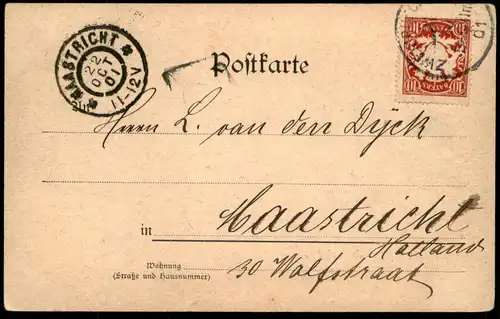 MAASTRICHT
22
OCT
01
11-12V
Postkarte
01
ZWE
10 10
BAYERN
10 10
Herrn L. van den Dÿck
in Maastricht
Holland
Wohnung
(Straße und Hausnummer)
30 Wolfstraat